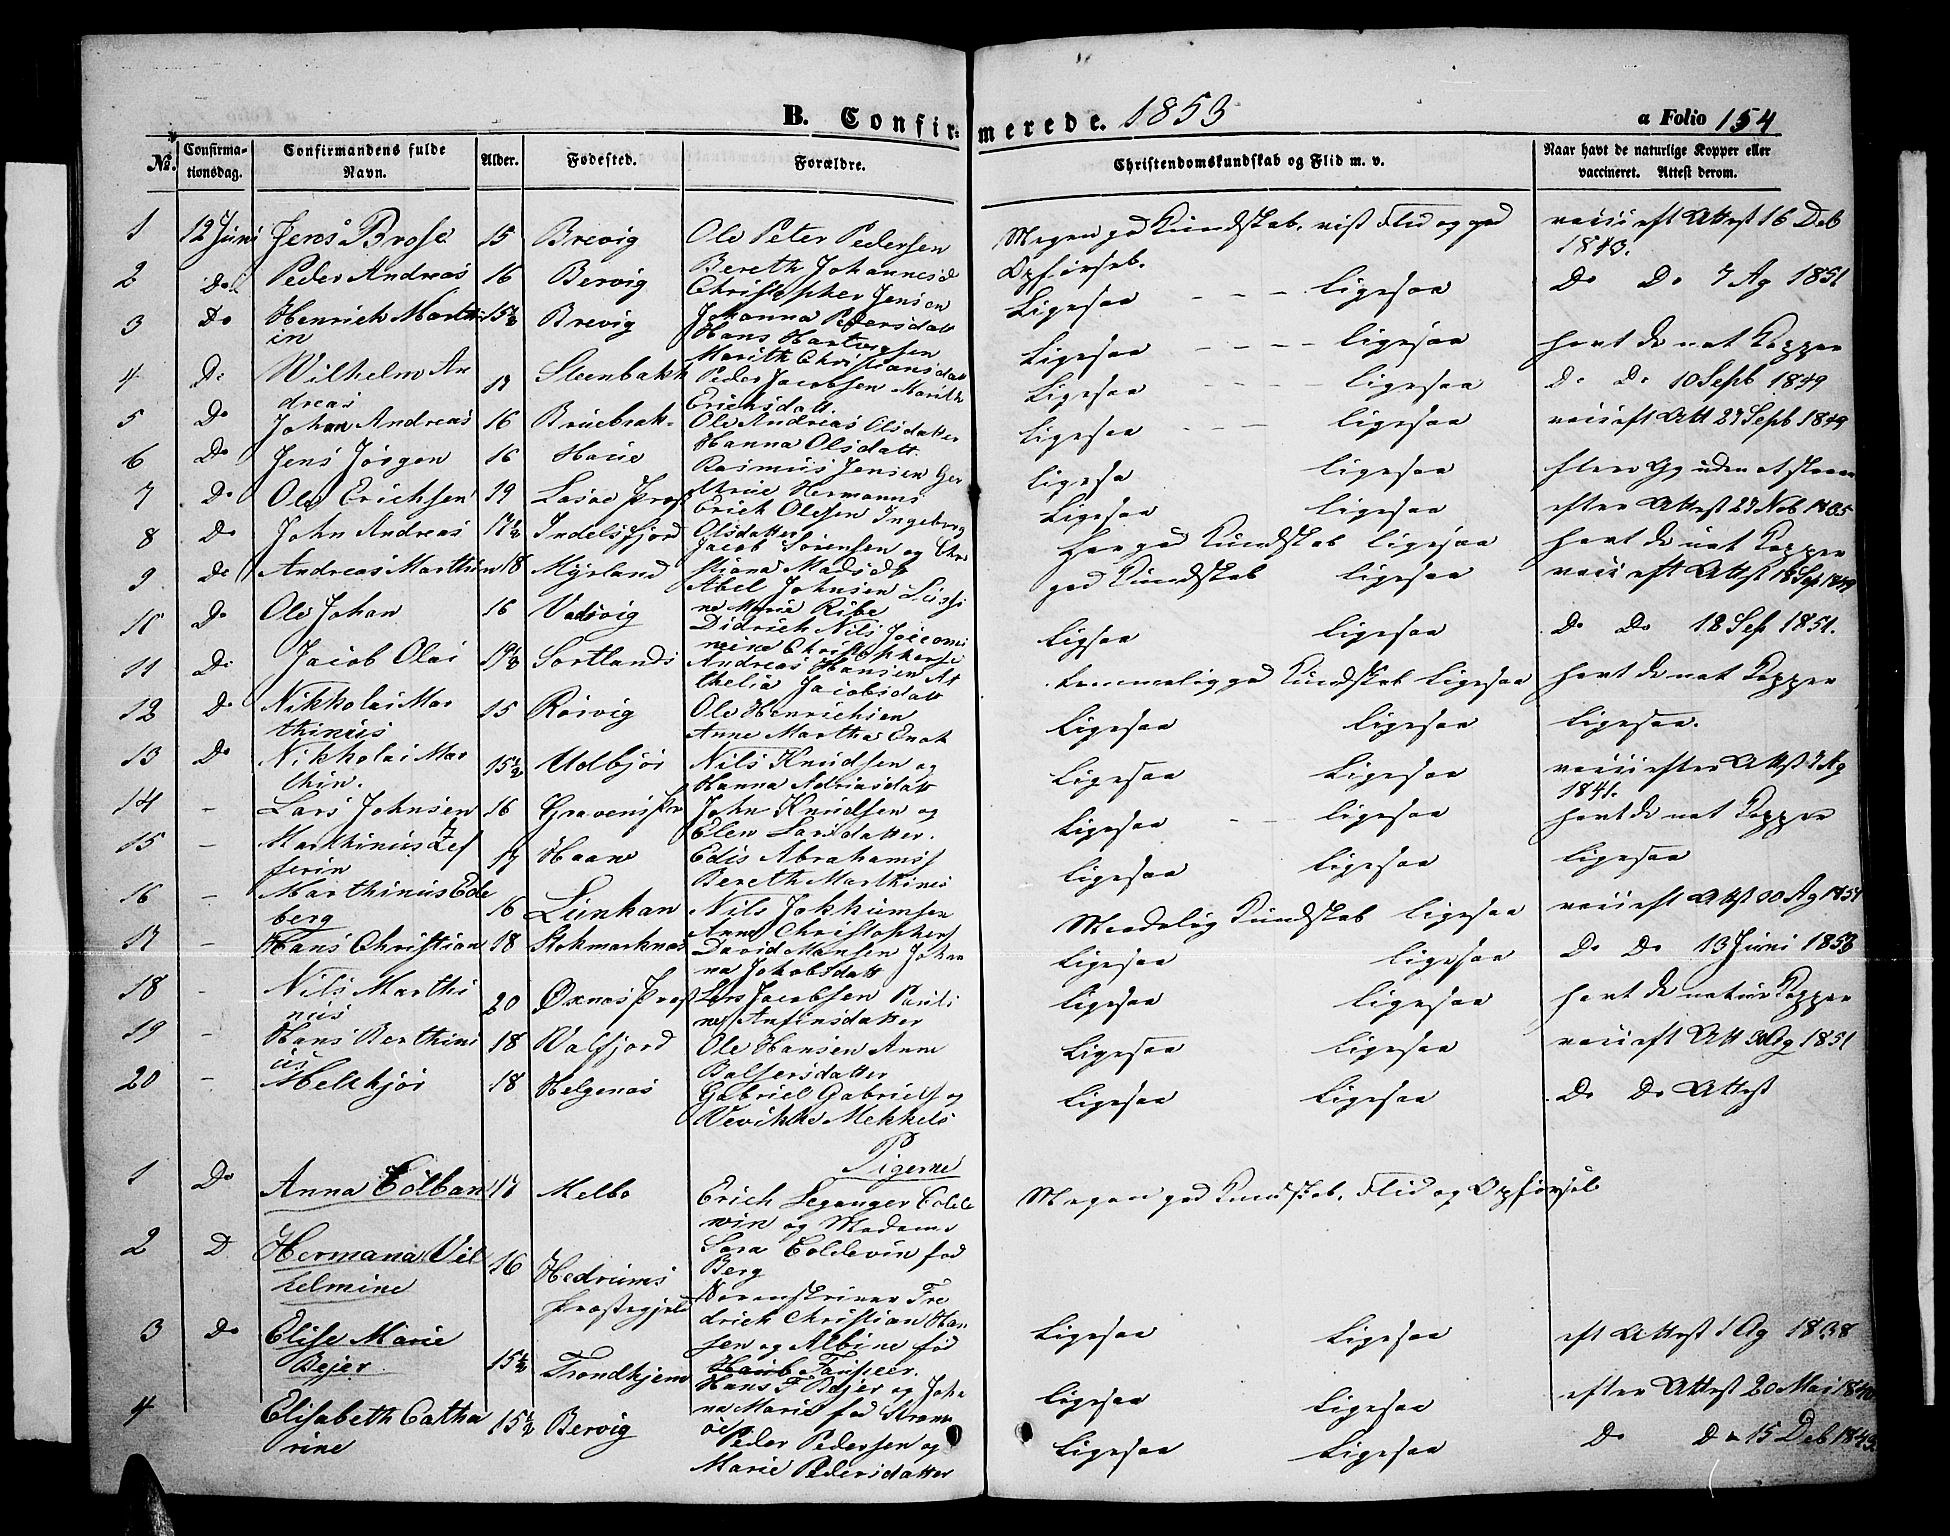 B. Confirmerede. 1853
a Folio 154
No. Confirmationsdag. Confirmandens fulde Navn. Alder. Fødested. Forældre. Christendomskundskab og Flid m. v. Naar havt de naturlige Kopper eller vaccineret. Attest derom.
1 12 Juni Jens Brose 15 Brevig Ole Peter Pedersen Bereth Johannesd Megen god Kundskab, vist Flid og god Opførsel. vacci eft Attest 16 Deb 1843.
2 Do Peder Andreas 16 Bervig Christopher Jensen Johanna Pedersdatt Ligesaa - - - ligesaa Do Do 7 Ag 1851
3 Do Henrich Marthin 15½ Brevig Hans Hartvigsen Marith Christiansdatt Ligesaa - - - - ligesaa havt de nat Kopper
4 Do Wilhelm Andreas 17 Steenbakk Peder Jacobsen Marith Erichsdatt Ligesaa - - - - ligesaa Do Do 10 Sepb 1849
5 Do Johan Andreas 16 Bruebrak- Ole Andreas Olsdatter Hanna Olsdatt. ligesaa - - - ligesaa vacci eft Att 27 Sepb 1849
6 Do Jens Jørgen 16 Rasmus Jensen Hermanns ligesa ligesaa
7 Do Ole Erichsen 19 Erich Olesen Ingeborg Olsdatter Ligesaa ligesaa efter Attest 27 Nob
8 Do John Andreas 17½ Indelsfjord Jacob Sørensen og Christiana Madsdt Har god Kundskab ligesaa havt de nat Kopper
9 Do Andreas Marthin 18 Myrland Abel Johnsen Marie Ribe god Kundskab ligesaa vacci eft Attst 18 Sep 1849
10 Do Ole Johan 16 Didrich Nils Ligesaa ligesaa Do Do 18 Sep 1851.
11 Do Jacob Olai Sortlands Andreas Hansen Jacobsdatt Temmelig god Kundskab Ligesaa havt de nat Kopper
12 Do Nikkolai Marthinus 15 Rørvig Ole Henrichsen Anne Martha Enok Ligesaa ligesaa ligesaa.
13 Do Nikkolai Marthin. 15½ Udbjør Nils Knudsen og Hanna Adriasdatt Ligesaa ligesaa vacci efter Attst 7 Ag 1841.
14 - Lars Johnsen 16 John Knudsen og Elen Larsdatter. Ligesaa - - ligesaa havt de nat Kopper
15 - Marthinus Zefferin 17 Haane Edis Abrahams Bereth Marthines Ligesaa ligesaa ligesaa
16 - Marthinus Edeberg 16 Lunkan Nils Jokkumsen Anne Christophers Maadelig Kundskab ligesaa vacci eft Attst 30 Ag 1851
17 - Hans Christian 18 Stokmarknæs David Monsen Johanna Jakobsdatt Ligesaa ligesaa Do Do 13 Juni 1853
18 - Nils Marthinus 20 Øxnæs Præst Lars Jacobsen Pauline Anfinsdatter Ligesaa Ligesaa havt de natur Kopper
19 - Hans Berthinius 18 Valfjord Ole Hansen Anne Balsersdatter Ligesaa ligesaa vacci eft Att 30 Ag 1851
20 - Melchjør 18 Helgenæs Gabriel Gabriels og Vevikke Mekkels Ligesaa ligesaa Do Do Attest
Pigerne
1 Do Anna Colban 17 Melbo Erich Leganger Coldevin og Madame Sara Coldevin fød Berg Megen god Kundskab, Flid og Opførsel
2 D Hermana Vilhelmine 16 Hedrums Præstegjeld Sorenskriver Fredrich Christian Hansen og Albine fød Faupeer. Ligesaa Ligesaa eft Attest 1 Ag 1838
3 Do Elise Marie Bejer 15½ Trondhjem Hans F Bejer og Johna Marie fød Strømsøe Ligesaa ligesaa efter Attest 20 Mai
4 Elisabeth Catharine 15½ Bervig Peder Pedersen og Marie Pedersdatter Ligesaa Ligesaa Do Do 15 Deb 1843